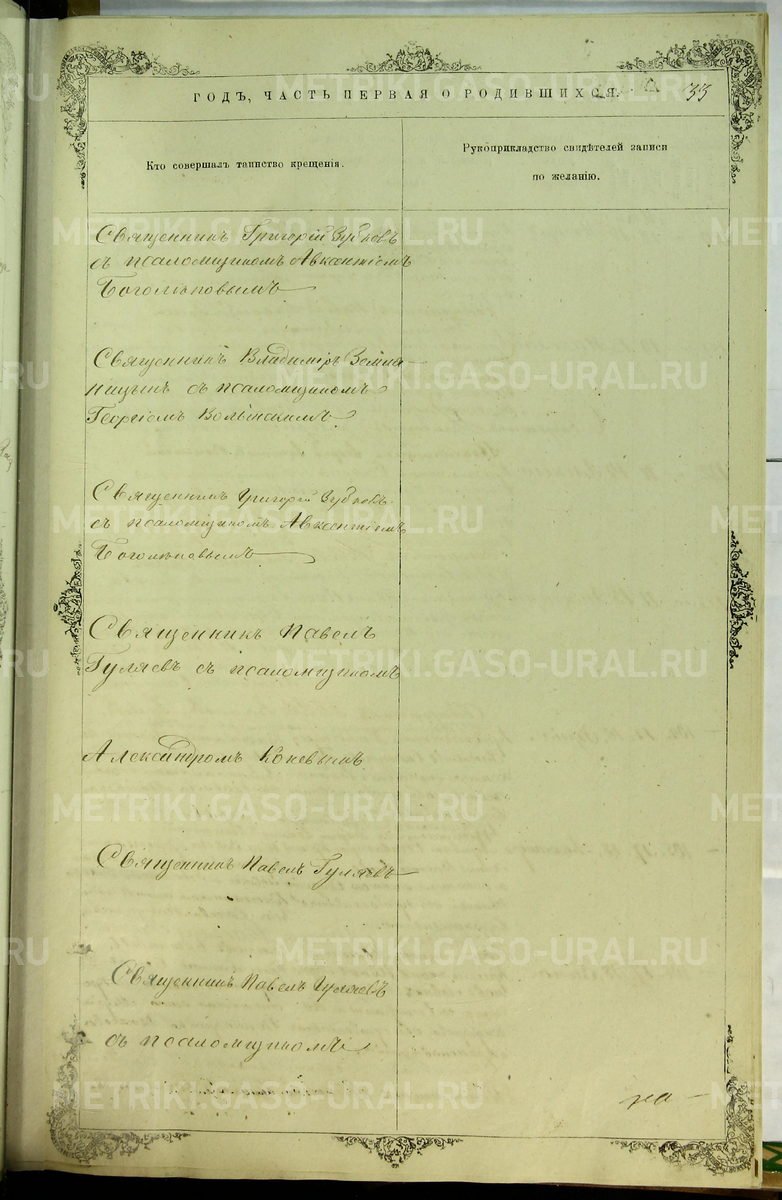 ГОДЪ, ЧАСТЬ ПЕРВАЯ О РОДИВШИХСЯ. 33
Кто совершалъ таинство крещенія.
Рукоприкладство свидѣтелей записи
по желанію.
Священникъ Григорій Зубковъ
съ псаломщикомъ Авксентіемъ
Боголюповымъ
Священникъ Владиміръ Земля-
ницынъ съ псаломщикомъ
Георгіомъ Волынскимъ
Священникъ Григорій Зубковъ
съ псаломщикомъ Авксентіемъ
Боголюповымъ
Священникъ Павелъ
Гуляевъ съ псаломщикомъ
Александромъ Коневымъ
Священникъ Павелъ Гуляевъ
Священникъ Павелъ Гуляевъ
съ псаломщикомъ
METRIKI.GASO-URAL.RU